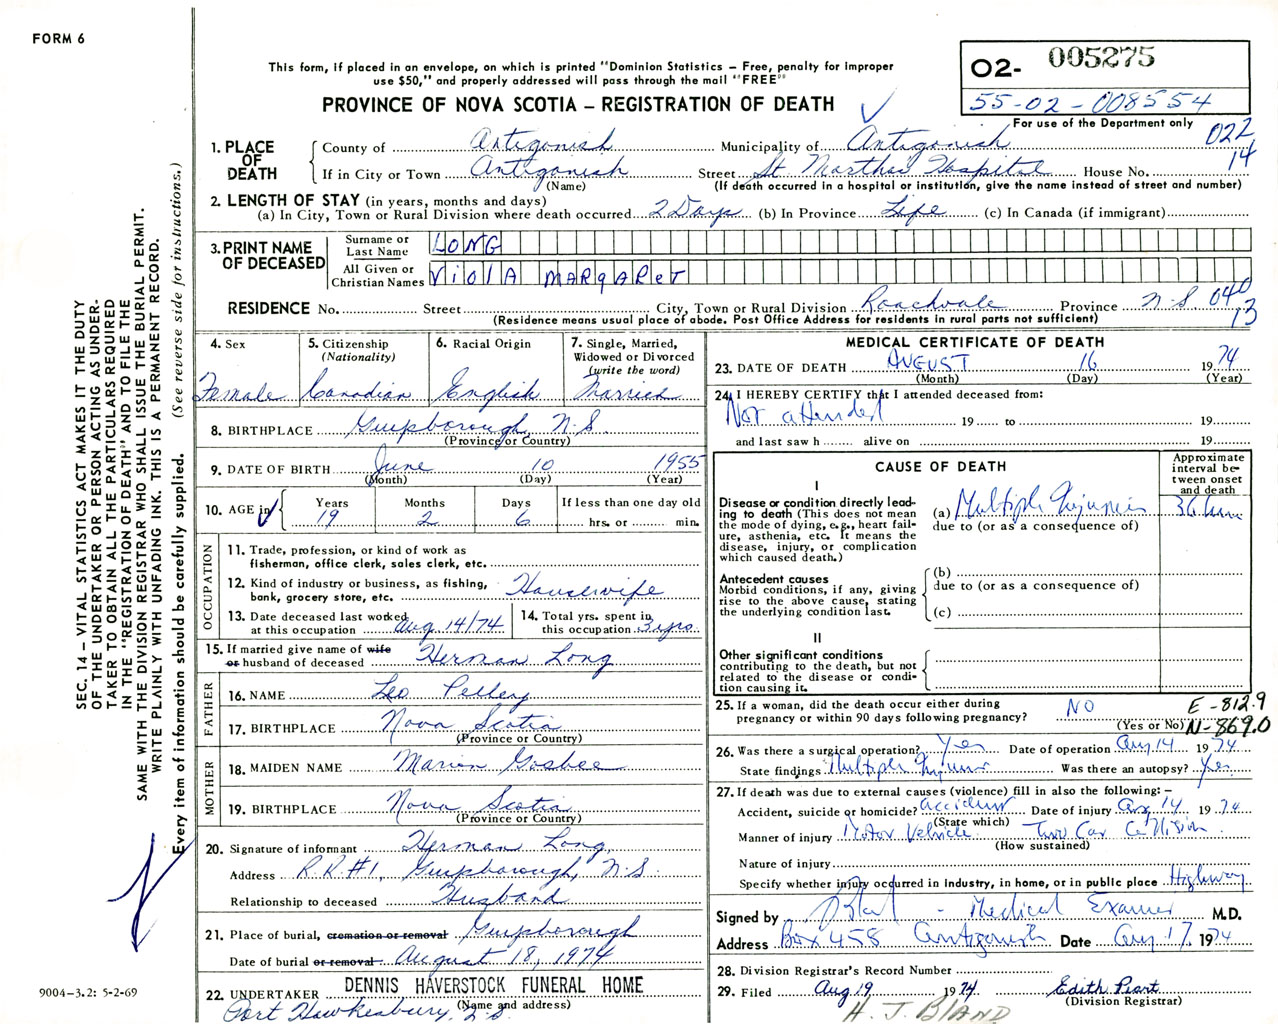 FORM 6
This form, if placed in an envelope, on which is printed "Dominion Statistics – Free, penalty for improper
use $50," and properly addressed will pass through the mail "FREE"
PROVINCE OF NOVA SCOTIA – REGISTRATION OF DEATH
02- 005275
55-02-008554
For use of the Department only
022
14
1. PLACE OF DEATH
County of Antigonish Municipality of Antigonish
If in City or Town Antigonish Street St Marthas Hospital House No.
(Name) (If death occurred in a hospital or institution, give the name instead of street and number)
2. LENGTH OF STAY (in years, months and days)
(a) In City, Town or Rural Division where death occurred 2 Days (b) In Province Life (c) In Canada (if immigrant)
3. PRINT NAME OF DECEASED
Surname or Last Name LONG
All Given or Christian Names VIOLA MARGARET
RESIDENCE No. Street City, Town or Rural Division Roachvale Province N.S. 040
13
(Residence means usual place of abode. Post Office Address for residents in rural parts not sufficient)
4. Sex
Female
5. Citizenship
(Nationality)
Canadian
6. Racial Origin
English
7. Single, Married,
Widowed or Divorced
(write the word)
Married
8. BIRTHPLACE Guysborough, N.S.
(Province or Country)
9. DATE OF BIRTH June 10 1955
(Month) (Day) (Year)
10. AGE in
Years Months Days If less than one day old
19 2 6 hrs. or min.
OCCUPATION
11. Trade, profession, or kind of work as
fisherman, office clerk, sales clerk, etc.
12. Kind of industry or business, as fishing,
bank, grocery store, etc. Housewife
13. Date deceased last worked
at this occupation Aug 14/74
14. Total yrs. spent in
this occupation 3 yrs
15. If married give name of wife
or husband of deceased Herman Long
FATHER
16. NAME Leo Pelley
17. BIRTHPLACE Nova Scotia
(Province or Country)
MOTHER
18. MAIDEN NAME Marion Gosbee
19. BIRTHPLACE Nova Scotia
(Province or Country)
20. Signature of informant Herman Long
Address R.R.#1, Guysborough, N.S.
Relationship to deceased Husband
21. Place of burial, cremation or removal Guysborough
Date of burial or removal August 18, 1974
22. UNDERTAKER DENNIS HAVERSTOCK FUNERAL HOME
(Name and address)
Port Hawkesbury, N.S.
MEDICAL CERTIFICATE OF DEATH
23. DATE OF DEATH AUGUST 16 1974
(Month) (Day) (Year)
24. I HEREBY CERTIFY that I attended deceased from:
Not attended 19 to 19
and last saw h alive on 19
CAUSE OF DEATH
Approximate
interval be-
tween onset
and death
I
Disease or condition directly lead-
ing to death (This does not mean
the mode of dying, e.g., heart fail-
ure, asthenia, etc. It means the
disease, injury, or complication
which caused death.)
(a) Multiple Injuries
36 hrs
due to (or as a consequence of)
Antecedent causes
Morbid conditions, if any, giving
rise to the above cause, stating
the underlying condition last.
(b)
due to (or as a consequence of)
(c)
II
Other significant conditions
contributing to the death, but not
related to the disease or condi-
tion causing it.
25. If a woman, did the death occur either during
pregnancy or within 90 days following pregnancy? NO
(Yes or No)
E-812.9
N-869.0
26. Was there a surgical operation? Yes Date of operation Aug 14 1974
State findings Multiple Injuries Was there an autopsy? Yes
27. If death was due to external causes (violence) fill in also the following: –
Accident, suicide or homicide? accident Date of injury Aug 14 1974
(State which)
Manner of injury Motor Vehicle Two Car Collision
(How sustained)
Nature of injury
Specify whether injury occurred in industry, in home, or in public place Highway
Signed by - Medical Examiner M.D.
Address Box 458 Antigonish Date Aug 17 1974
28. Division Registrar's Record Number
29. Filed Aug 19 1974 Edith Peart
(Division Registrar)
H. J. BLAND
SEC. 14 – VITAL STATISTICS ACT MAKES IT THE DUTY
OF THE UNDERTAKER OR PERSON ACTING AS UNDER-
TAKER TO OBTAIN ALL THE PARTICULARS REQUIRED
IN THE "REGISTRATION OF DEATH" AND TO FILE THE
SAME WITH THE DIVISION REGISTRAR WHO SHALL ISSUE THE BURIAL PERMIT.
WRITE PLAINLY WITH UNFADING INK. THIS IS A PERMANENT RECORD.
Every item of information should be carefully supplied. (See reverse side for instructions.)
9004-3.2: 5-2-69